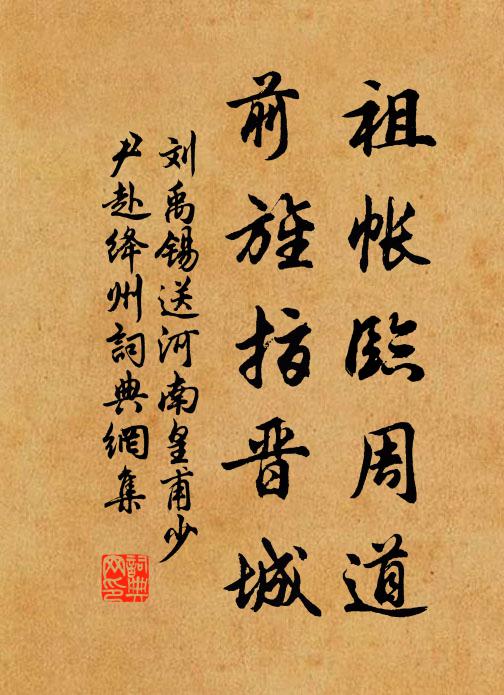 祖帐臨周道
前旌指晋城
刘禹锡送河南皇甫少
尹赴绛州詞典網集
詞典
网印